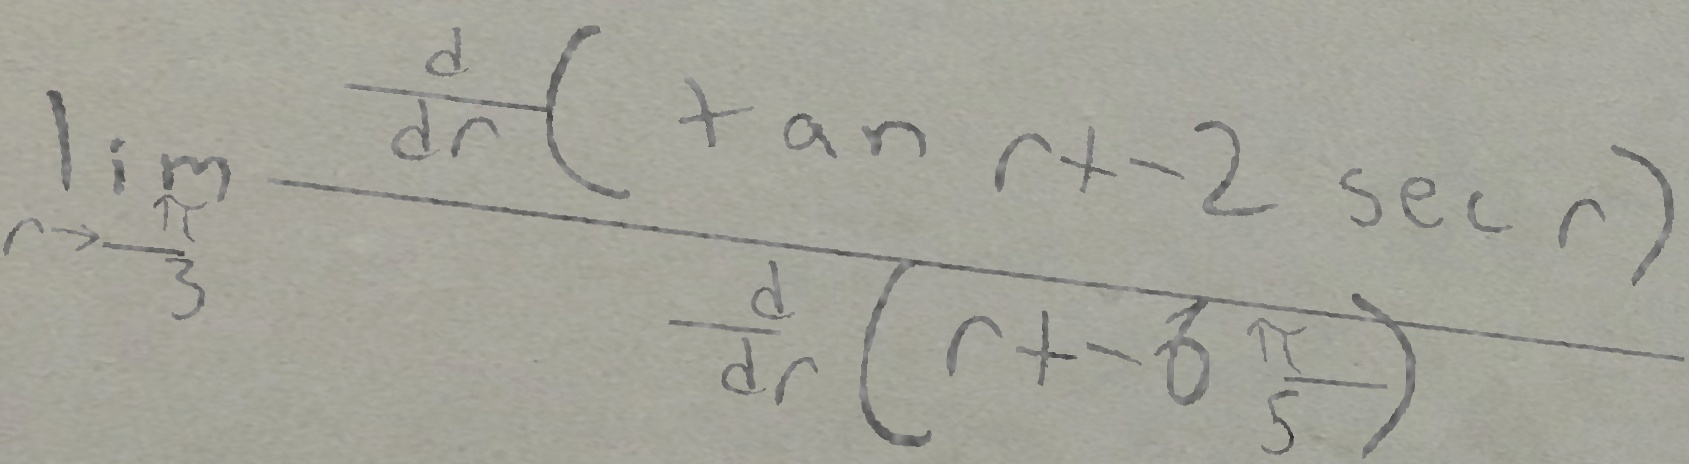 \lim_{r \to \frac{\pi}{3}} \frac{\frac{d}{dr}(\tan r + -2 \sec r)}{\frac{d}{dr}(r + -6 \frac{\pi}{5})}